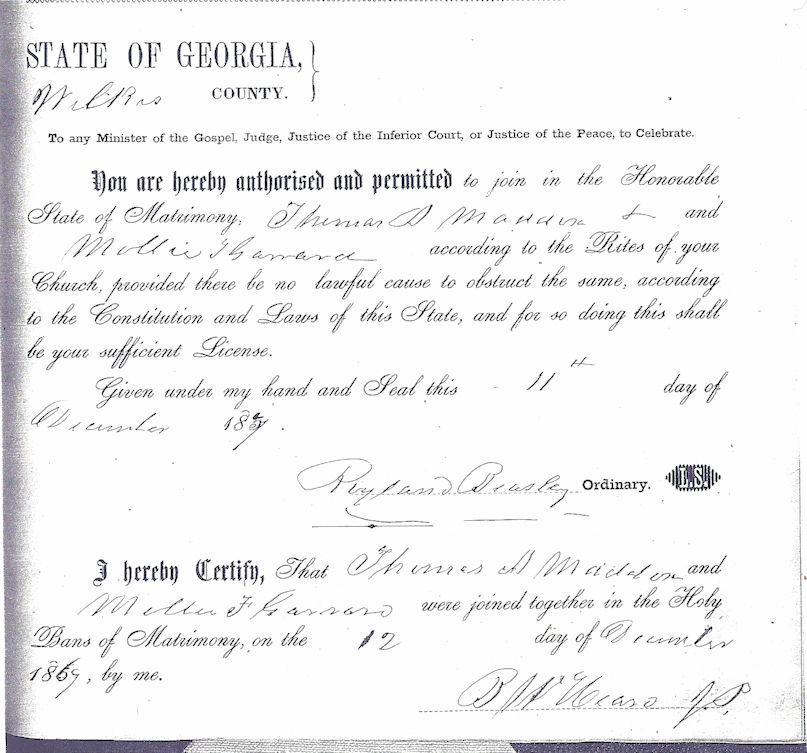 STATE OF GEORGIA, }
Wilkes COUNTY.
To any Minister of the Gospel, Judge, Justice of the Inferior Court, or Justice of the Peace, to Celebrate.
You are hereby authorised and permitted to join in the Honorable
State of Matrimony, Thomas D Maddox & and
Mollie F Garrard according to the Rites of your
Church, provided there be no lawful cause to obstruct the same, according
to the Constitution and Laws of this State, and for so doing this shall
be your sufficient License.
Given under my hand and Seal this 11th day of
December
Ryland Beasley Ordinary. L.S.
I hereby Certify, That Thomas D Maddox and
Mollie F Garrard were joined together in the Holy
Bans of Matrimony, on the 12 day of December
1867, by me.
B W Heard J.P.